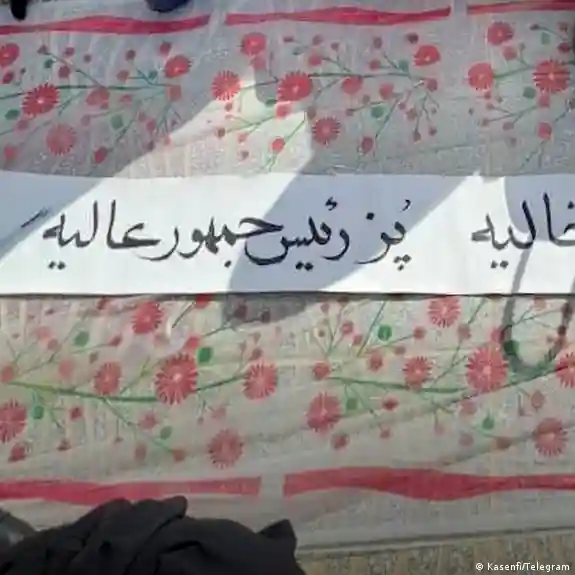 خالیه پُز رئیس جمهور عالیه
© Kasenfi/Telegram